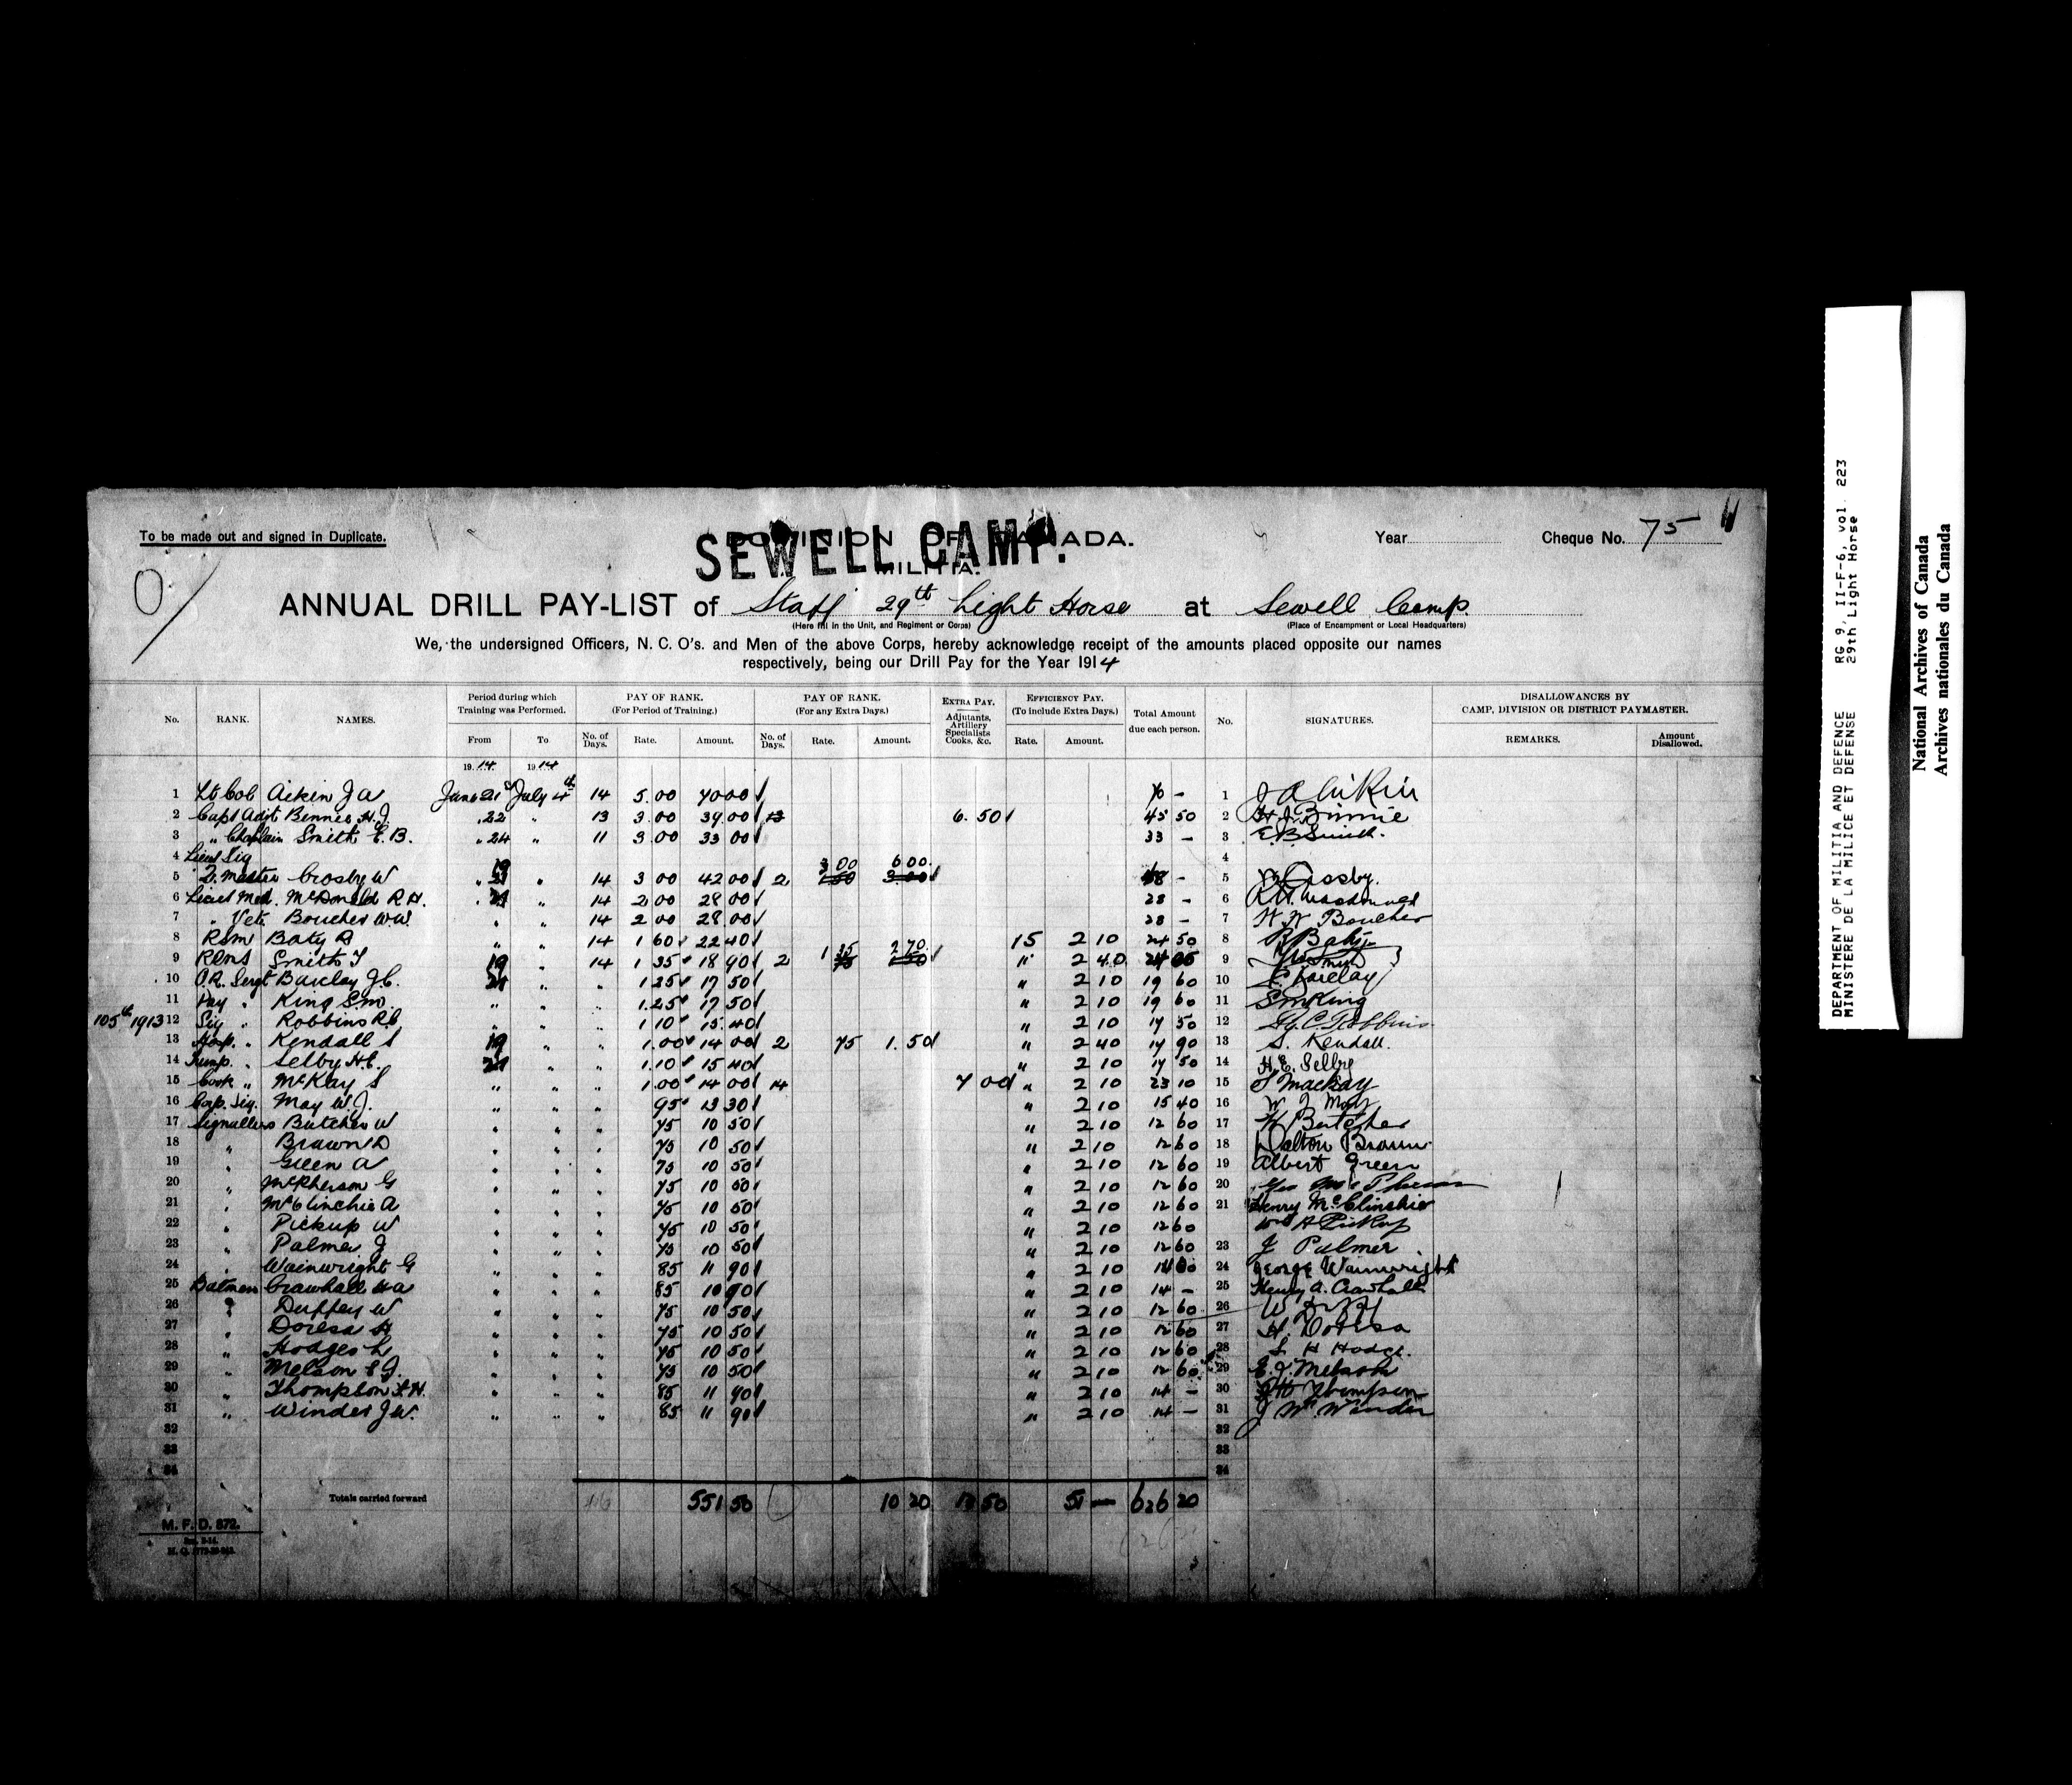 To be made out and signed in Duplicate.
DOMINION OF CANADA.
SEWELL CAMP.
MILITIA.
Year
Cheque No. 75
ANNUAL DRILL PAY-LIST of Staff 29th Light Horse at Sewell Camp.
(Here fill in the Unit, and Regiment or Corps) (Place of Encampment or Local Headquarters)
We, the undersigned Officers, N. C. O's. and Men of the above Corps, hereby acknowledge receipt of the amounts placed opposite our names
respectively, being our Drill Pay for the Year 1914
No. RANK. NAMES. Period during which Training was Performed. PAY OF RANK. (For Period of Training.) PAY OF RANK. (For any Extra Days.) EXTRA PAY. Adjutants, Artillery Specialists Cooks, &c. EFFICIENCY PAY. (To include Extra Days.) Total Amount due each person. No. SIGNATURES. DISALLOWANCES BY CAMP, DIVISION OR DISTRICT PAYMASTER.
From To No. of Days. Rate. Amount. No. of Days. Rate. Amount. Rate. Amount. REMARKS. Amount Disallowed.
1914 1914
1 Lt Col Aikin J A June 21st July 4th 14 5.00 70 00 70 - 1 J A Aikin
2 Capt Adjt Binnie H.J. 22 " 13 3.00 39.00 13 6.50 45 50 2 H J Binnie
3 " Chaplain Smith E.B. " 24 " 11 3 00 33 00 33 - 3 E.B. Smith.
4 Lieut Sig 4
5 Q. Master Crosby W 14 3 00 42 00 2 3 00 6 00 48 - 5 W Crosby.
6 Lieut Med. McDonald R H. 14 2 00 28 00 28 - 6
7 " Vete Boucher W.W. 14 2 00 28 00 28 - 7 W W Boucher
8 RSM Baty R " " 14 1 60 22 40 15 2 10 24 50 8 R Baty
9 RQMS Smith T 19 " 14 1 35 18 90 2 1 35 2 70 " 2 40 9
10 O.R. Sergt Barclay J.C. " " 1 25 17 50 " 2 10 19 60 10 Barclay
11 Pay " King S.M. " " " 1.25 17 50 " 2 10 19 60 11 S M King
105th 1913 12 Sig " Robbins R.C. " " " 1 10 15 40 " 2 10 17 50 12 C Robbins
13 Hosp. " Kendall S 19 " " 1.00 14 00 2 75 1.50 " 2 40 17 90 13 S. Kendall.
14 Trump. " Selby H.E. 21 " " 1.10 15 40 " 2 10 17 50 14 H.E. Selby
15 Cook " McKay S " " " 1.00 14 00 14 7 00 " 2 10 23 10 15 S Mackay
16 Corp. Sig. May W.J. " " " 95 13 30 " 2 10 15 40 16 W J May
17 Signallers Butcher W " " " 75 10 50 " 2 10 12 60 17 W Butcher
18 " Brawn D " " " 75 10 50 " 2 10 12 60 18 Dalton Brawn
19 " Green A " " " 75 10 50 " 2 10 12 60 19 Albert Green
20 " McPherson G " " " 75 10 50 " 2 10 12 60 20 Geo McPherson
21 " McClinchie A " " " 75 10 50 " 2 10 12 60 21 Henry McClinchie
22 " Pickup W " " " 75 10 50 " 2 10 12 60 Wm A Pickup
23 " Palmer J " " " 75 10 50 " 2 10 12 60 23 J Palmer
24 " Wainwright G " " " 85 11 90 " 2 10 24 George Wainwright
25 Batmen Crawhall H A " " " 85 " 2 10 14 - 25 Henry A. Crawhall
26 " Duffey W " " " 75 10 50 " 2 10 12 60 26
27 " Doresa H " " " 75 10 50 " 2 10 12 60 27 H. Doresa
28 " Hodges L " " " 75 10 50 " 2 10 12 60 28 L H Hodge.
29 " Melson E J " " " 75 10 50 " 2 10 12 60 29 E.J. Melson
30 " Thompson F.H. " " " 85 11 90 " 2 10 14 - 30 Thompson
31 " Winder J W. " " " 85 11 90 " 2 10 14 - 31 J W. Winder
32 32
33 33
34 34
Totals carried forward 551 50 10 20 13 50 51 - 626 20
M. F. D. 872.
DEPARTMENT OF MILITIA AND DEFENCE RG 9, II-F-6, vol. 223
MINISTERE DE LA MILICE ET DEFENSE 29th Light Horse
National Archives of Canada
Archives nationales du Canada